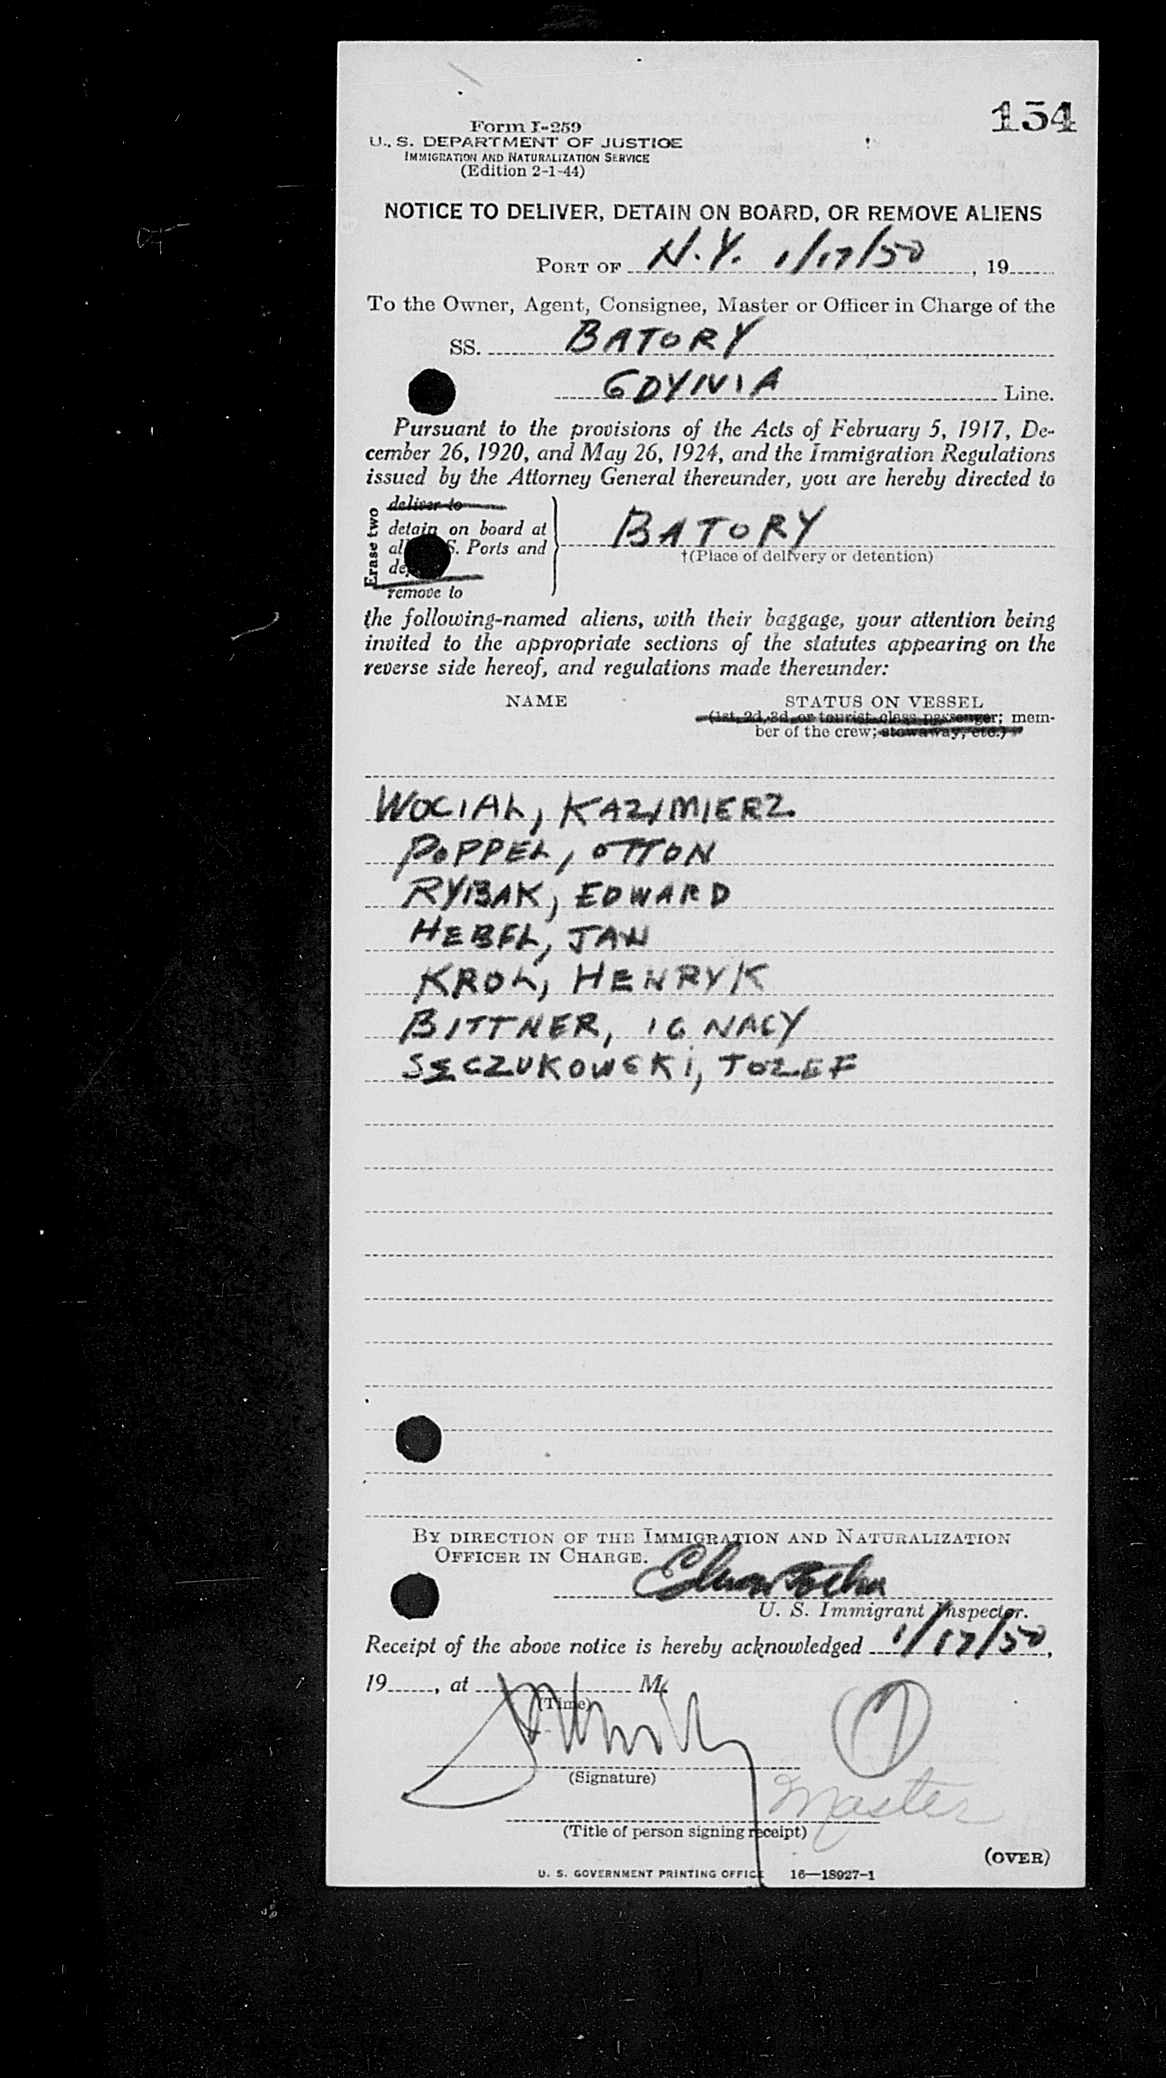 154
Form I-259
U. S. DEPARTMENT OF JUSTICE
IMMIGRATION AND NATURALIZATION SERVICE
(Edition 2-1-44)
NOTICE TO DELIVER, DETAIN ON BOARD, OR REMOVE ALIENS
PORT OF N.Y. 1/17/50, 19
To the Owner, Agent, Consignee, Master or Officer in Charge of the
SS. BATORY
GDYNIA Line.
Pursuant to the provisions of the Acts of February 5, 1917, De-
cember 26, 1920, and May 26, 1924, and the Immigration Regulations
issued by the Attorney General thereunder, you are hereby directed to
Erase two
deliver to
detain on board at
S. Ports and
BATORY
†(Place of delivery or detention)
remove to
the following-named aliens, with their baggage, your attention being
invited to the appropriate sections of the statutes appearing on the
reverse side hereof, and regulations made thereunder:
NAME STATUS ON VESSEL
(1st, 2d, 3d, or tourist class passenger; mem-
ber of the crew; stowaway, etc.)
WOCIAL, KAZIMIERZ
POPPEL, OTTON
RYBAK, EDWARD
HEBEL, JAN
KROL, HENRYK
BITTNER, IGNACY
SECZUKOWSKI, JOZEF
BY DIRECTION OF THE IMMIGRATION AND NATURALIZATION
OFFICER IN CHARGE.
U. S. Immigrant Inspector.
Receipt of the above notice is hereby acknowledged 1/17/50,
19, at M.
(Time)
7
(Signature)
Master
(Title of person signing receipt)
(OVER)
U. S. GOVERNMENT PRINTING OFFICE 16—18927-1